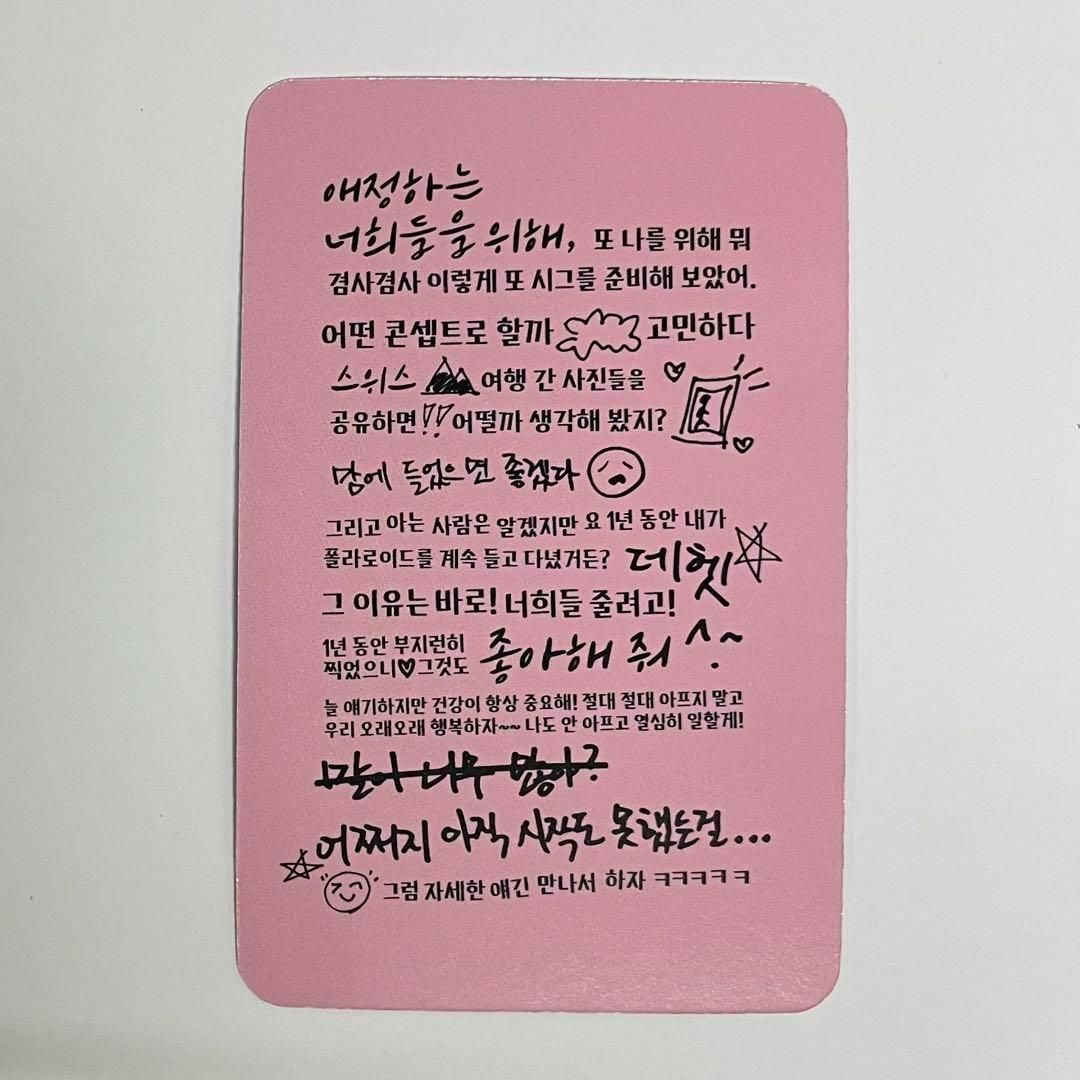 애정하는
너희들을 위해, 또 나를 위해 뭐
겸사겸사 이렇게 또 시그를 준비해 보았어.
어떤 콘셉트로 할까 고민하다
스위스 여행 간 사진들을
공유하면!! 어떨까 생각해 봤지?
맘에 들었으면 좋겠다
그리고 아는 사람은 알겠지만 요 1년 동안 내가
폴라로이드를 계속 들고 다녔거든? 데헷
그 이유는 바로! 너희들 줄려고!
1년 동안 부지런히
찍었으니♥그것도 좋아해 줘 ^.~
늘 얘기하지만 건강이 항상 중요해! 절대 절대 아프지 말고
우리 오래오래 행복하자~~ 나도 안 아프고 열심히 일할게!
말이 너무 많아?
어쩌지 아직 시작도 못했는걸...
그럼 자세한 얘긴 만나서 하자 ㅋㅋㅋㅋㅋ